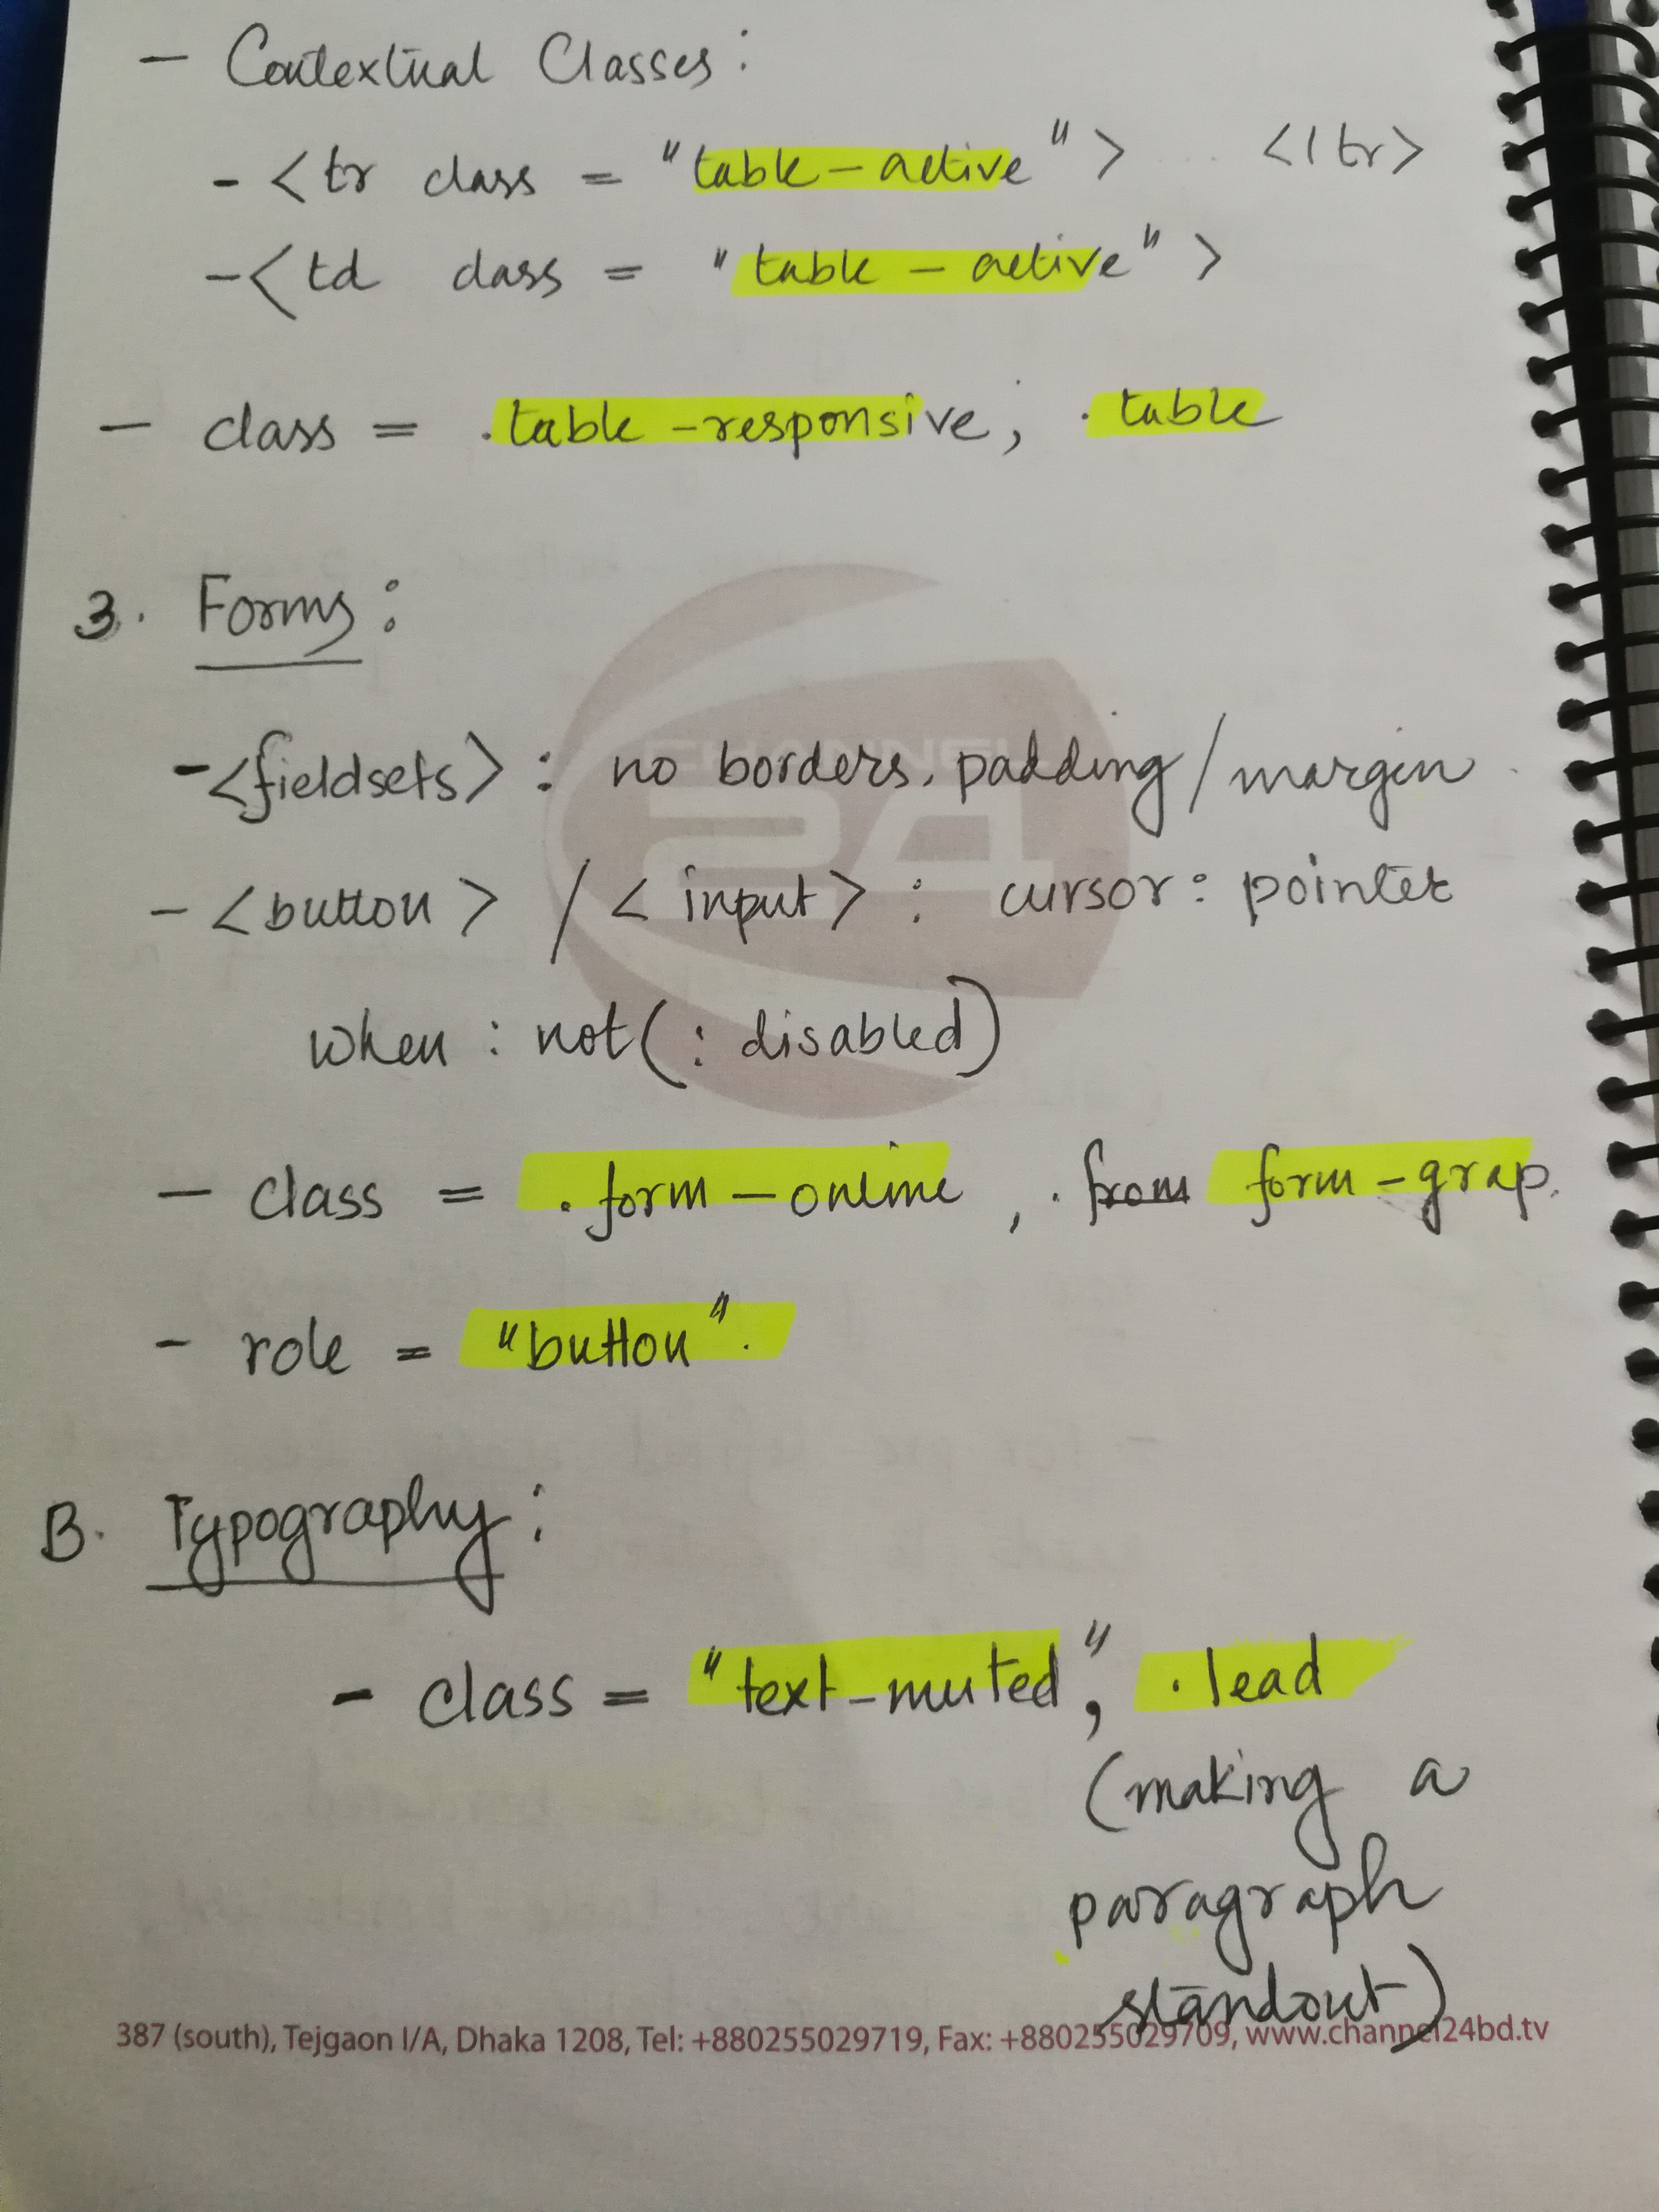 - Contextual Classes:
- <tr class = "table-active"> .. </tr>
- <td class = "table-active">
- class = .table-responsive, .table
3. Forms:
- <fieldsets> : no borders, padding/margin
- <button> / <input> : cursor: pointer
when : not(: disabled)
- class = .form-online, .from form-grap.
- role = "button".
B. Typography:
- class = "text-muted", .lead
(making a
paragraph
standout)
CHANNEL
24
387 (south), Tejgaon I/A, Dhaka 1208, Tel: +880255029719, Fax: +880255029709, www.channel24bd.tv